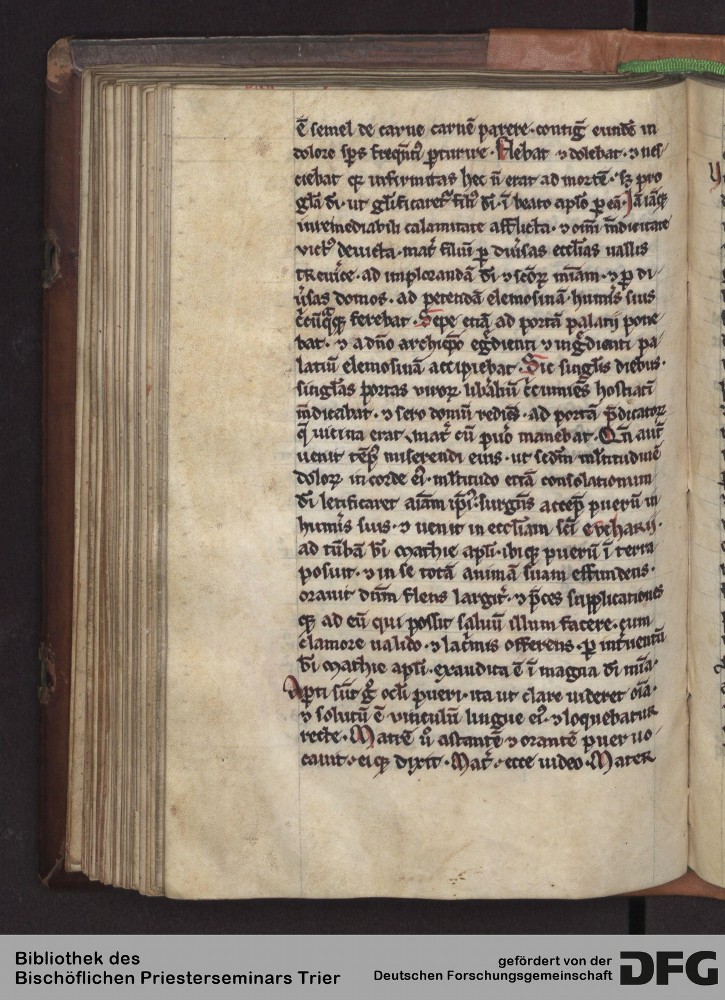 ē semel de carne carnē parere · contigͥ eundē in
dolore sp̄s freqn̄ti parturire · Flebat ⁊ dolebat · ⁊ nes
ciebat qꝫ infirmitas hec n̄ erat ad mortē · sꝫ pro
gl̄a dī · ut gl̄ificaretᵉ fili᷒ dī · ī beato apl̄o ꝑ eā · Jā iāqꝫ
inremediabili calamitate afflicta · ⁊ om̄i mēdicitate
victᷤ devicta · mat̄ filiū ꝑ diuͥsas eccl̄ias uallis
treuiͥce · ad implorandā dī ⁊ sc̄oꝝ m̄iam · ⁊ ꝑ di
uͥsas domos · ad petendā elemosinā · humͥis suis
cͥcūqꝫqꝫ ferebat · Sepe etiā ad portā palatij pone
bat · ⁊ a dn̄o archiep̄o egͥdienti ⁊ ingͥdienti pa
latiū elemosinā accipiebat · Sic singl̄is diebus ·
singl̄as portas viroꝝ libͥaliū cͥcumiēs hostiatī
mēdicabat · ⁊ sero domū rediēs · ad portā p̄dicatoꝝ
q̄ uicina erat · mat̄ cū puͥo manebat · Qn̄ aut̄
uenit tēpꝰ miserendi eius · ut sc̄dm ml̄titudinē
doloꝝ in corde eiꝰ · ml̄titudo etiā consolationum
dī letificaret aīam ip̄iꝰ · surgn̄s accep̄ puerū in
humͥis suis · ⁊ uenit in eccl̄iam sc̄i eucharij ·
ad tūbā bī mathie apl̄i · ibiqꝫ puerū ī terra
posuit · ⁊ in se totā animā suam effundens ·
orauit dīum flens largitͥ · ⁊ p̄ces supplicationes
qꝫ ad eū qui possit saluū illum facere · cum
clamore ualido · ⁊ lacͥmis offerens · ꝑ intͥuentū
bī mathie apl̄i · exaudita ē ī magna dī mīa ·
Apti sūt gͦ oc̄li pueri · ita ut clare uideret oīa ·
⁊ solutū ē uinculū lingue eiꝰ · ⁊ loquebatur
recte · Matrē uͦ astantē ⁊ orantē puer uo
cauit · eiqꝫ dixit · Mat̄ · ecce uideo · Mater
Bibliothek des
Bischöflichen Priesterseminars Trier
gefördert von der
Deutschen Forschungsgemeinschaft DFG